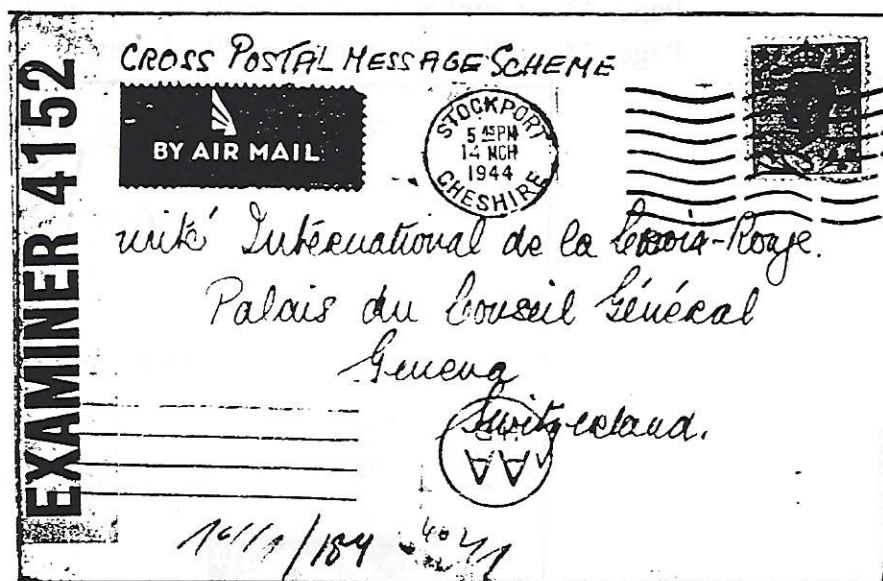 CROSS POSTAL MESSAGE SCHEME
BY AIR MAIL
STOCKPORT
5 45 PM
14 MCH
1944
CHESHIRE
EXAMINER 4152
mité International de la Croix-Rouge.
Palais du Conseil Général
Geneva
Switzerland.
AA